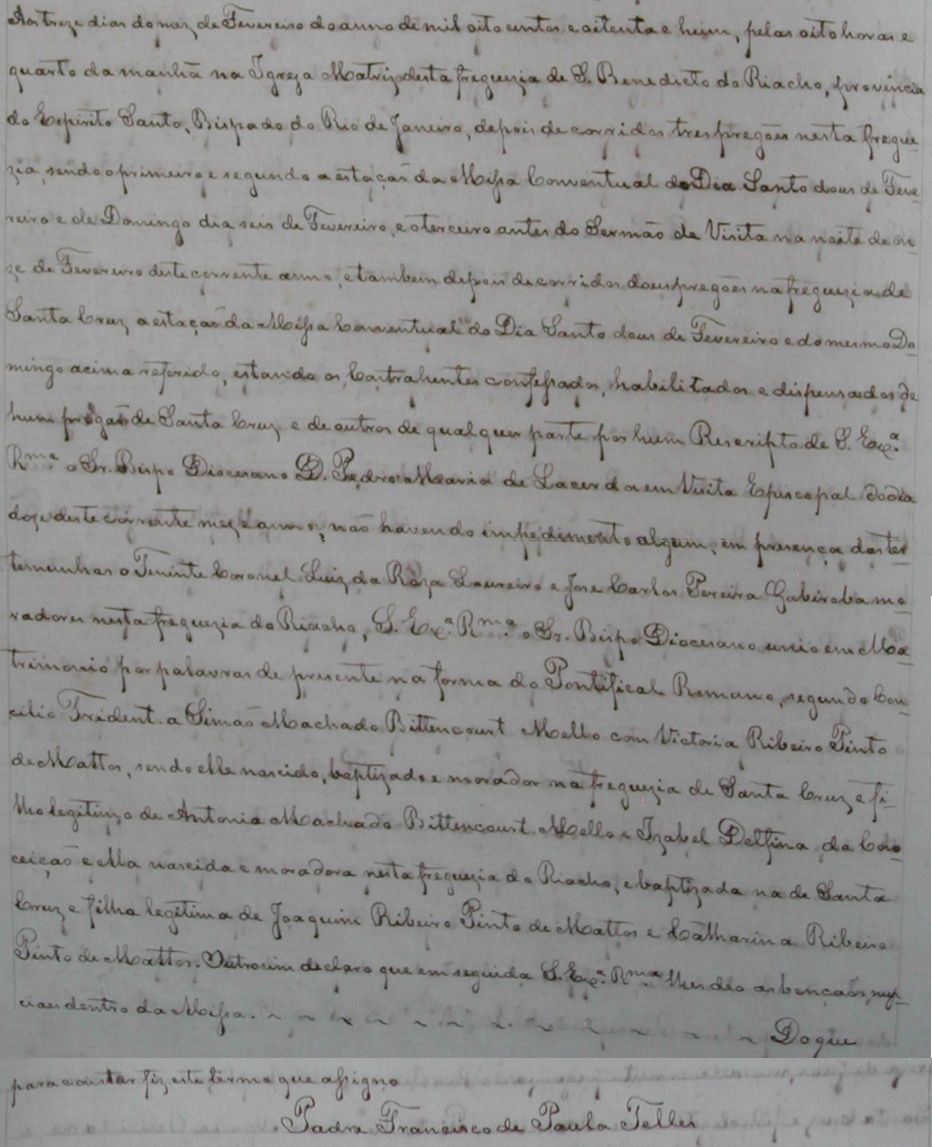 Aos treze dias do mez de Fevereiro do anno de mil oito centos e oitenta e hum, pelas oito horas e
quarto da manhã na Igreja Matriz desta freguezia de S. Benedicto do Riacho, provincia
do Espirito Santo, Bispado do Rio de Janeiro, depois de corridos tres pregões nesta fregue-
zia, sendo o primeiro e segundo a estação da Missa Conventual do Dia Santo dous de Feve-
reiro e de Domingo dia seis de Fevereiro, e o terceiro antes do Sermão da Visita na noite de on-
ze de Fevereiro deste corrente anno, e tambem depois de corridos dous pregões na freguezia de
Santa Cruz a estação da Missa Conventual do Dia Santo dous de Fevereiro e do mesmo Do-
mingo acima referido, estando os Contrahentes confessados, habilitados e dispensados de
hum pregão de Santa Cruz e de outros de qualquer parte por hum Rescripto de S. Exc.ª
Rm.ª o Sr. Bispo Diocesano D. Pedro Maria de Lacerda em Visita Episcopal do dia
doze deste corrente mez e anno, não havendo impedimento algum, em presença das tes-
temunhas o Tenente Coronel Luiz da Roza Loureiro e Jose Carlos Pereira Gabiroba mo-
radores nesta freguezia do Riacho, S. Exc.ª Rm.ª o Sr. Bispo Diocesano unio em Ma-
trimonio por palavras de presente na forma do Pontifical Romano, segundo Con-
cilio Trident. a Simão Machado Bittencourt Mello com Victoria Ribeiro Pinto
de Mattos, sendo elle nascido, baptizado e morador na freguezia de Santa Cruz e fi-
lho legitimo de Antonio Machado Bittencourt Mello e Izabel Delfina da Con-
ceição e ella nascida e moradora nesta freguezia do Riacho, e baptizada na de Santa
Cruz e filha legitima de Joaquim Ribeiro Pinto de Mattos e Catharina Ribeiro
Pinto de Mattos. Outrosim declaro que em seguida S. Exc.ª Rm.ª lhes deo as bençaõs nup-
ciaes dentro da Missa. ~ ~ ~ ~ ~ ~ ~ ~ ~ ~ ~ ~ Do que
para constar fiz este termo que assigno
Padre Francisco de Paula Telles